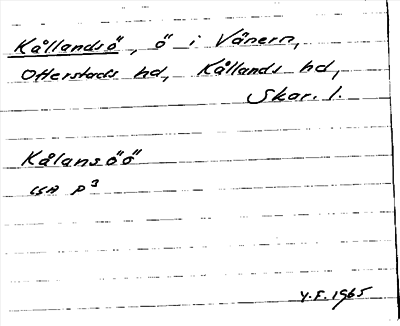 Kållandsö, ö i Vänern,
Otterstads hd, Kållands hd,
Skar. l.
Kålansöö
LSA P3
Y.F. 1965